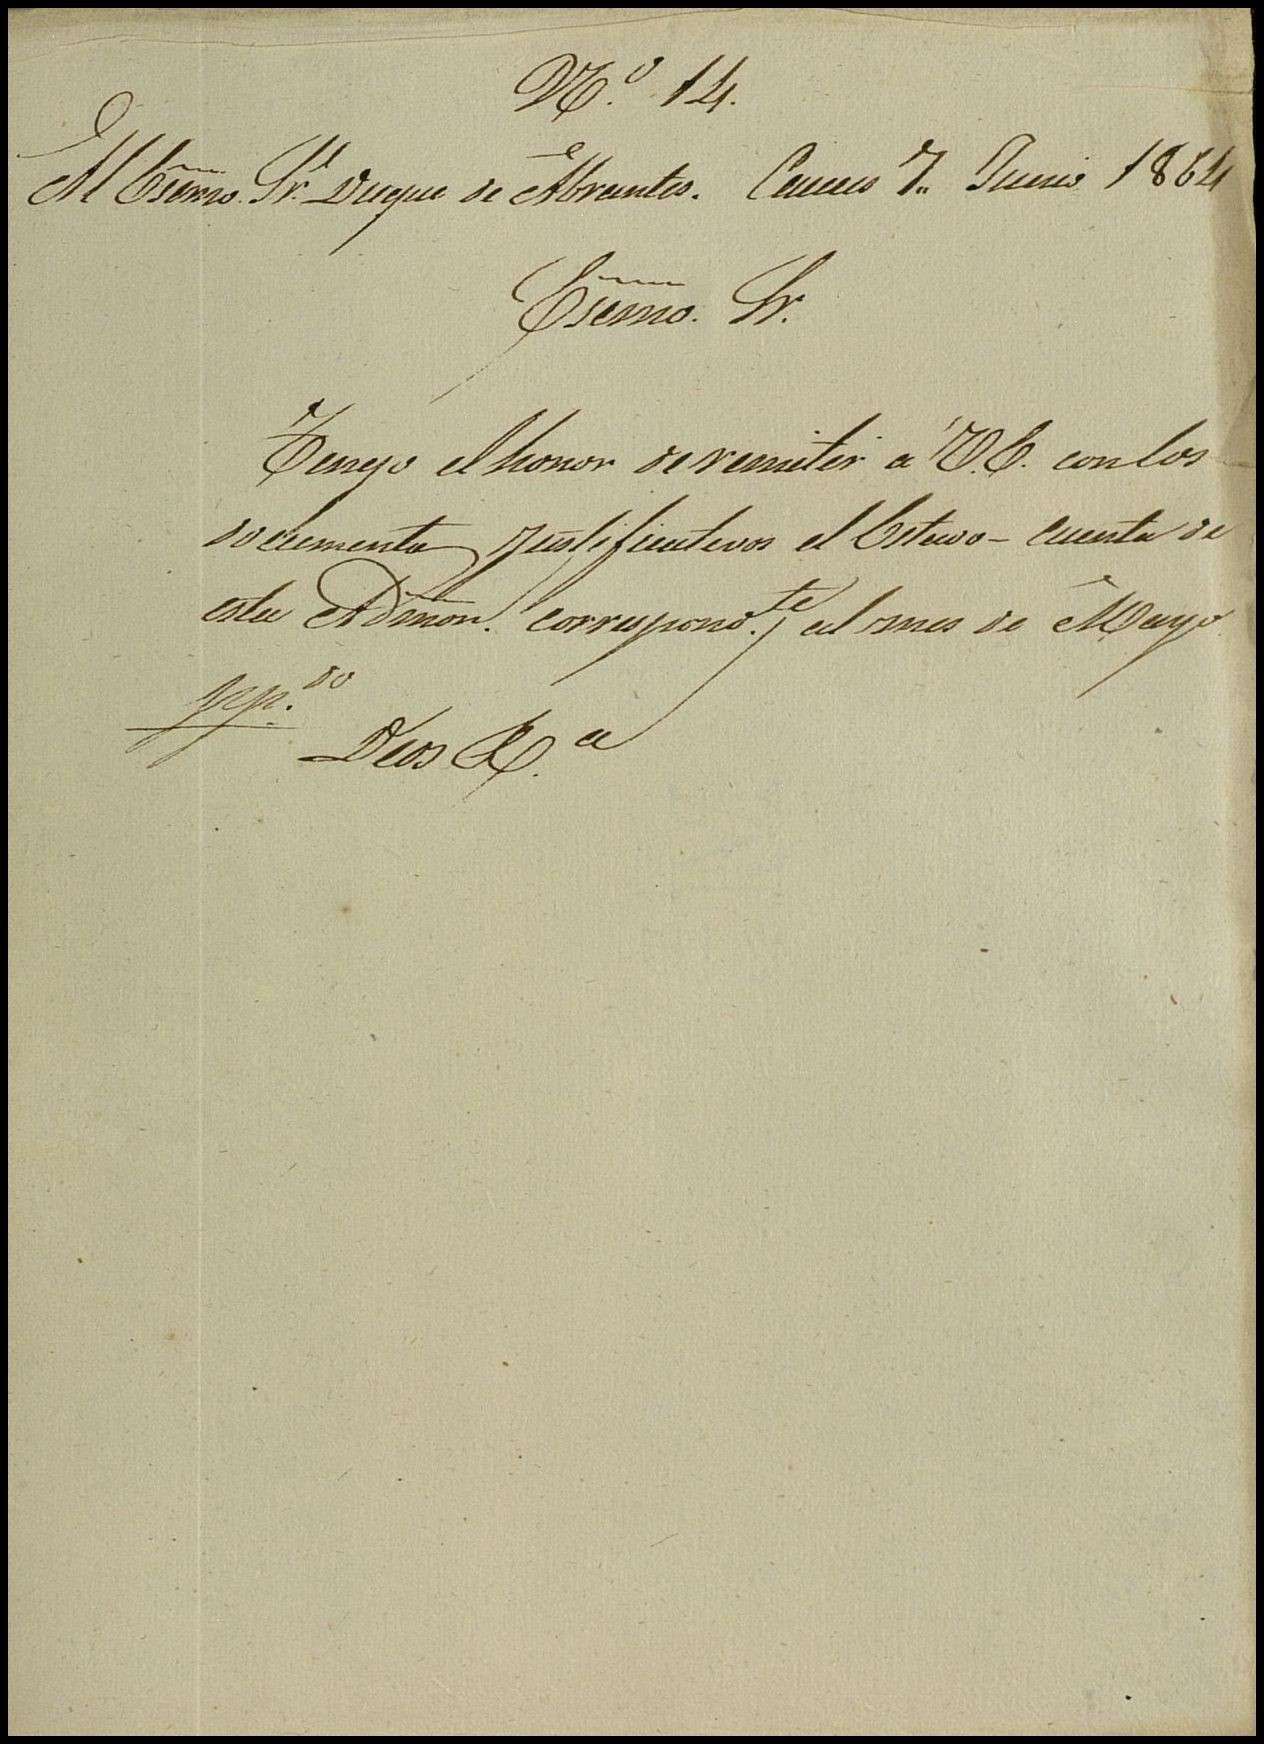 N.º 14.
Al Esemo. Sr. Duque de Abrantes. Caceres 7 Junio 1864
Esemo. Sr.
Tengo el honor de remitir a V.E. con los
documentos justificativos el Estado-cuenta de
esta Admon. correspond.te al mes de Mayo
pp.do
Dios &.a